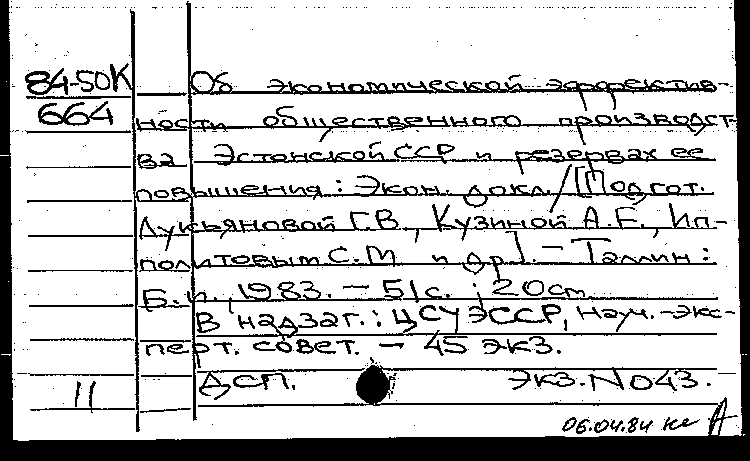 84-50К Об экономической эффектив-
664 ности общественного производст-
ва Эстонской ССР и резервах ее
повышения: Экон. докл. / [Подгот.
Лукьяновой Г.В., Кузиной А.Е., Ип-
политовым С.М и др]. - Таллин:
Б.и., 1983. - 51с. ; 20см.
В надзаг.: ЦСУ ЭССР, Науч.-экс-
перт. совет. - 45 экз.
11 ДСП. Экз.No43.
06.04.84